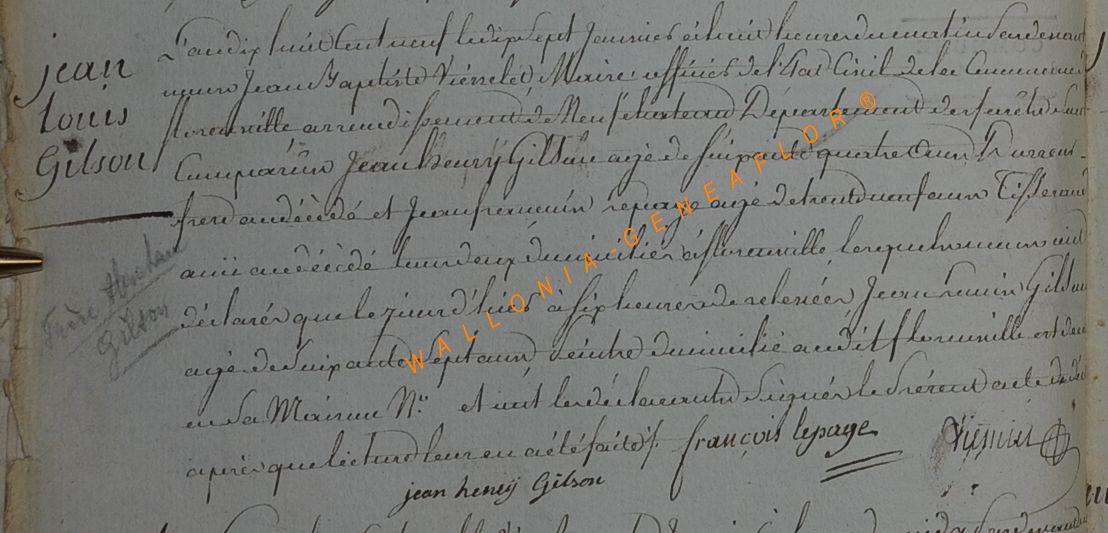 jean
Louis
Gilson
L'an dix huit cent neuf le dix sept Janvier à huit heures du matin pardevant
nous Jean Baptiste Maire officier de l'Etat Civil de la Commune
florenville arrondissement de Neufchateau Département des forêts
Comparûs Jean henry Gilson agé de soixante quatre ans
frere au décédé et Jean francois lepage agé de trente neuf ans Tisserand
ami au décédé tous deux domiciliés à florenville, lesquels nous ont
déclarés que le jour d'hier à six heures de relevée Jean Gilson
agé de soixante sept ans, peintre domicilié audit florenville est
en sa Maison N.° et ont les déclarants Signés le présent acte
après que lecture leur en a été faite /.
françois lepage
jean henrÿ Gilson
frère Abraham
Gilson
WALLONIA-GENEAFLOR ®